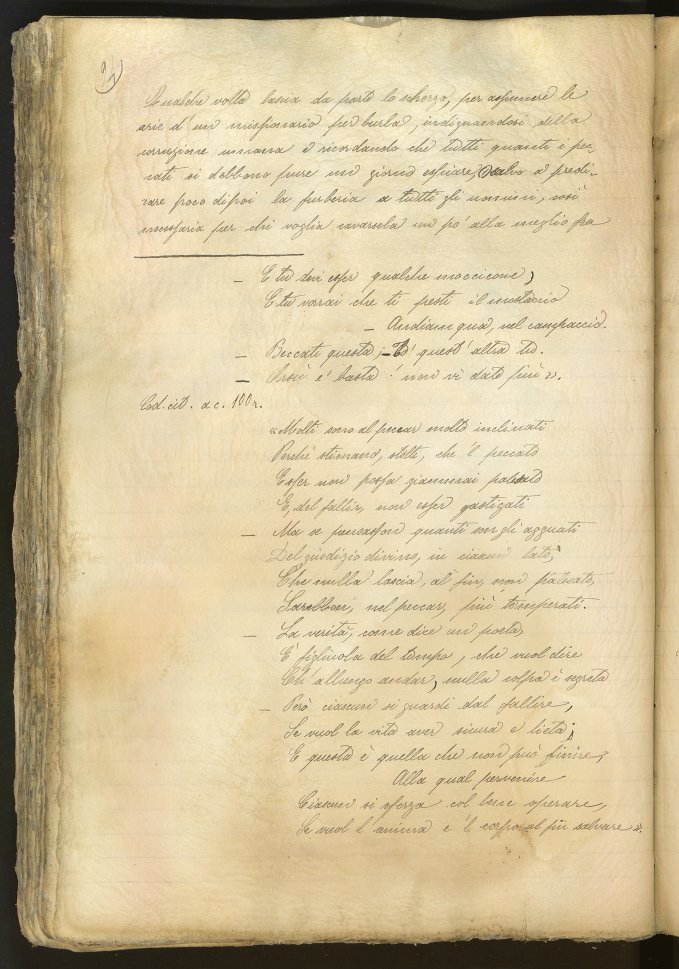 Qualche volta lascia da parte lo scherzo, per assumere le
arie d'un missionario per burla, indignandosi della
corruzione umana e ricordando che tutti quanti i pec-
cati si debbono pure un giorno espiare, salvo a predi-
care poco dipoi la furberia a tutti gli uomini, così
necessaria per chi voglia cavarsela un po' alla meglio fra
— E tu devi esser qualche moccicone,
E tu vorrai che ti pesti il mostaccio
— Andiam qua, nel campaccio.
— Beccati questa; — to' quest'altra tu.
— Orsù e' basta: non vi date più».
Cod. cit. a c. 100 r.
«Molti sono al peccar molto inclinati
Perchè stimano, stolti, che 'l peccato
Esser non possa giammai palesato
E, del fallir, non esser gastigati
— Ma se pensasson quanti son gli agguati
Del giudizio divino, in ciascun lato,
Che nulla lascia, al fin, non palesato,
Sarebbon, nel peccar, più temperati.
— La verità, come dice un poeta,
È figliuola del tempo, che vuol dire
Ch' allungo andar, nulla colpa è segreta
— Però ciascun si guardi dal fallire,
Se vuol la vita aver sicura e lieta;
E questa è quella che non può finire,
Alla qual pervenire
Ciascun si sforza col bene operare,
Se vuol l'anima e 'l corpo al fin salvare».